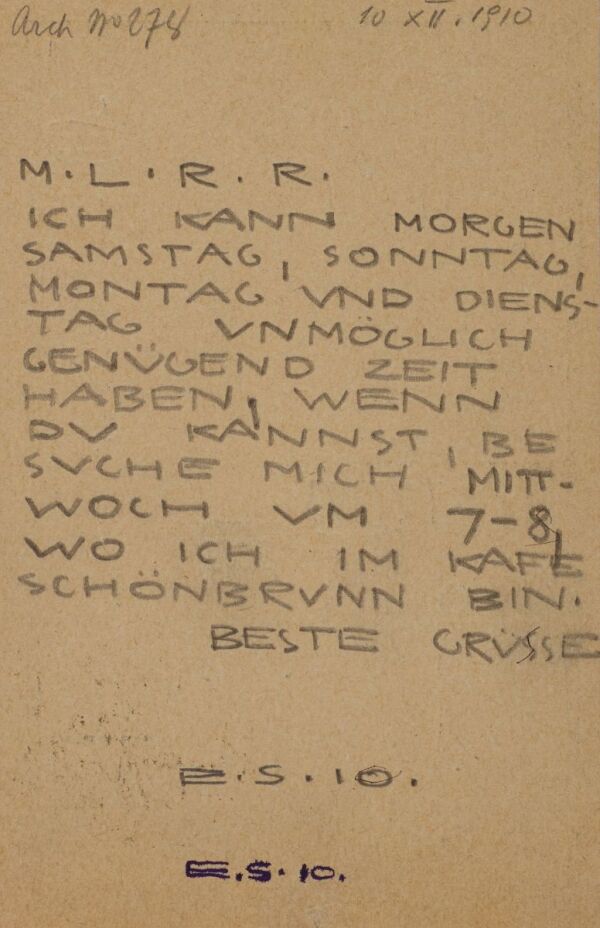 Arch No 278
10 XII. 1910
M. L. R. R.
ICH KANN MORGEN
SAMSTAG, SONNTAG,
MONTAG VND DIENS-
TAG VNMÖGLICH
GENÜGEND ZEIT
HABEN, WENN
DV KANNST, BE
SVCHE MICH MITT-
WOCH VM 7-8,
WO ICH IM KAFE
SCHÖNBRVNN BIN.
BESTE GRÜSSE
E.S.10.
E.S.10.